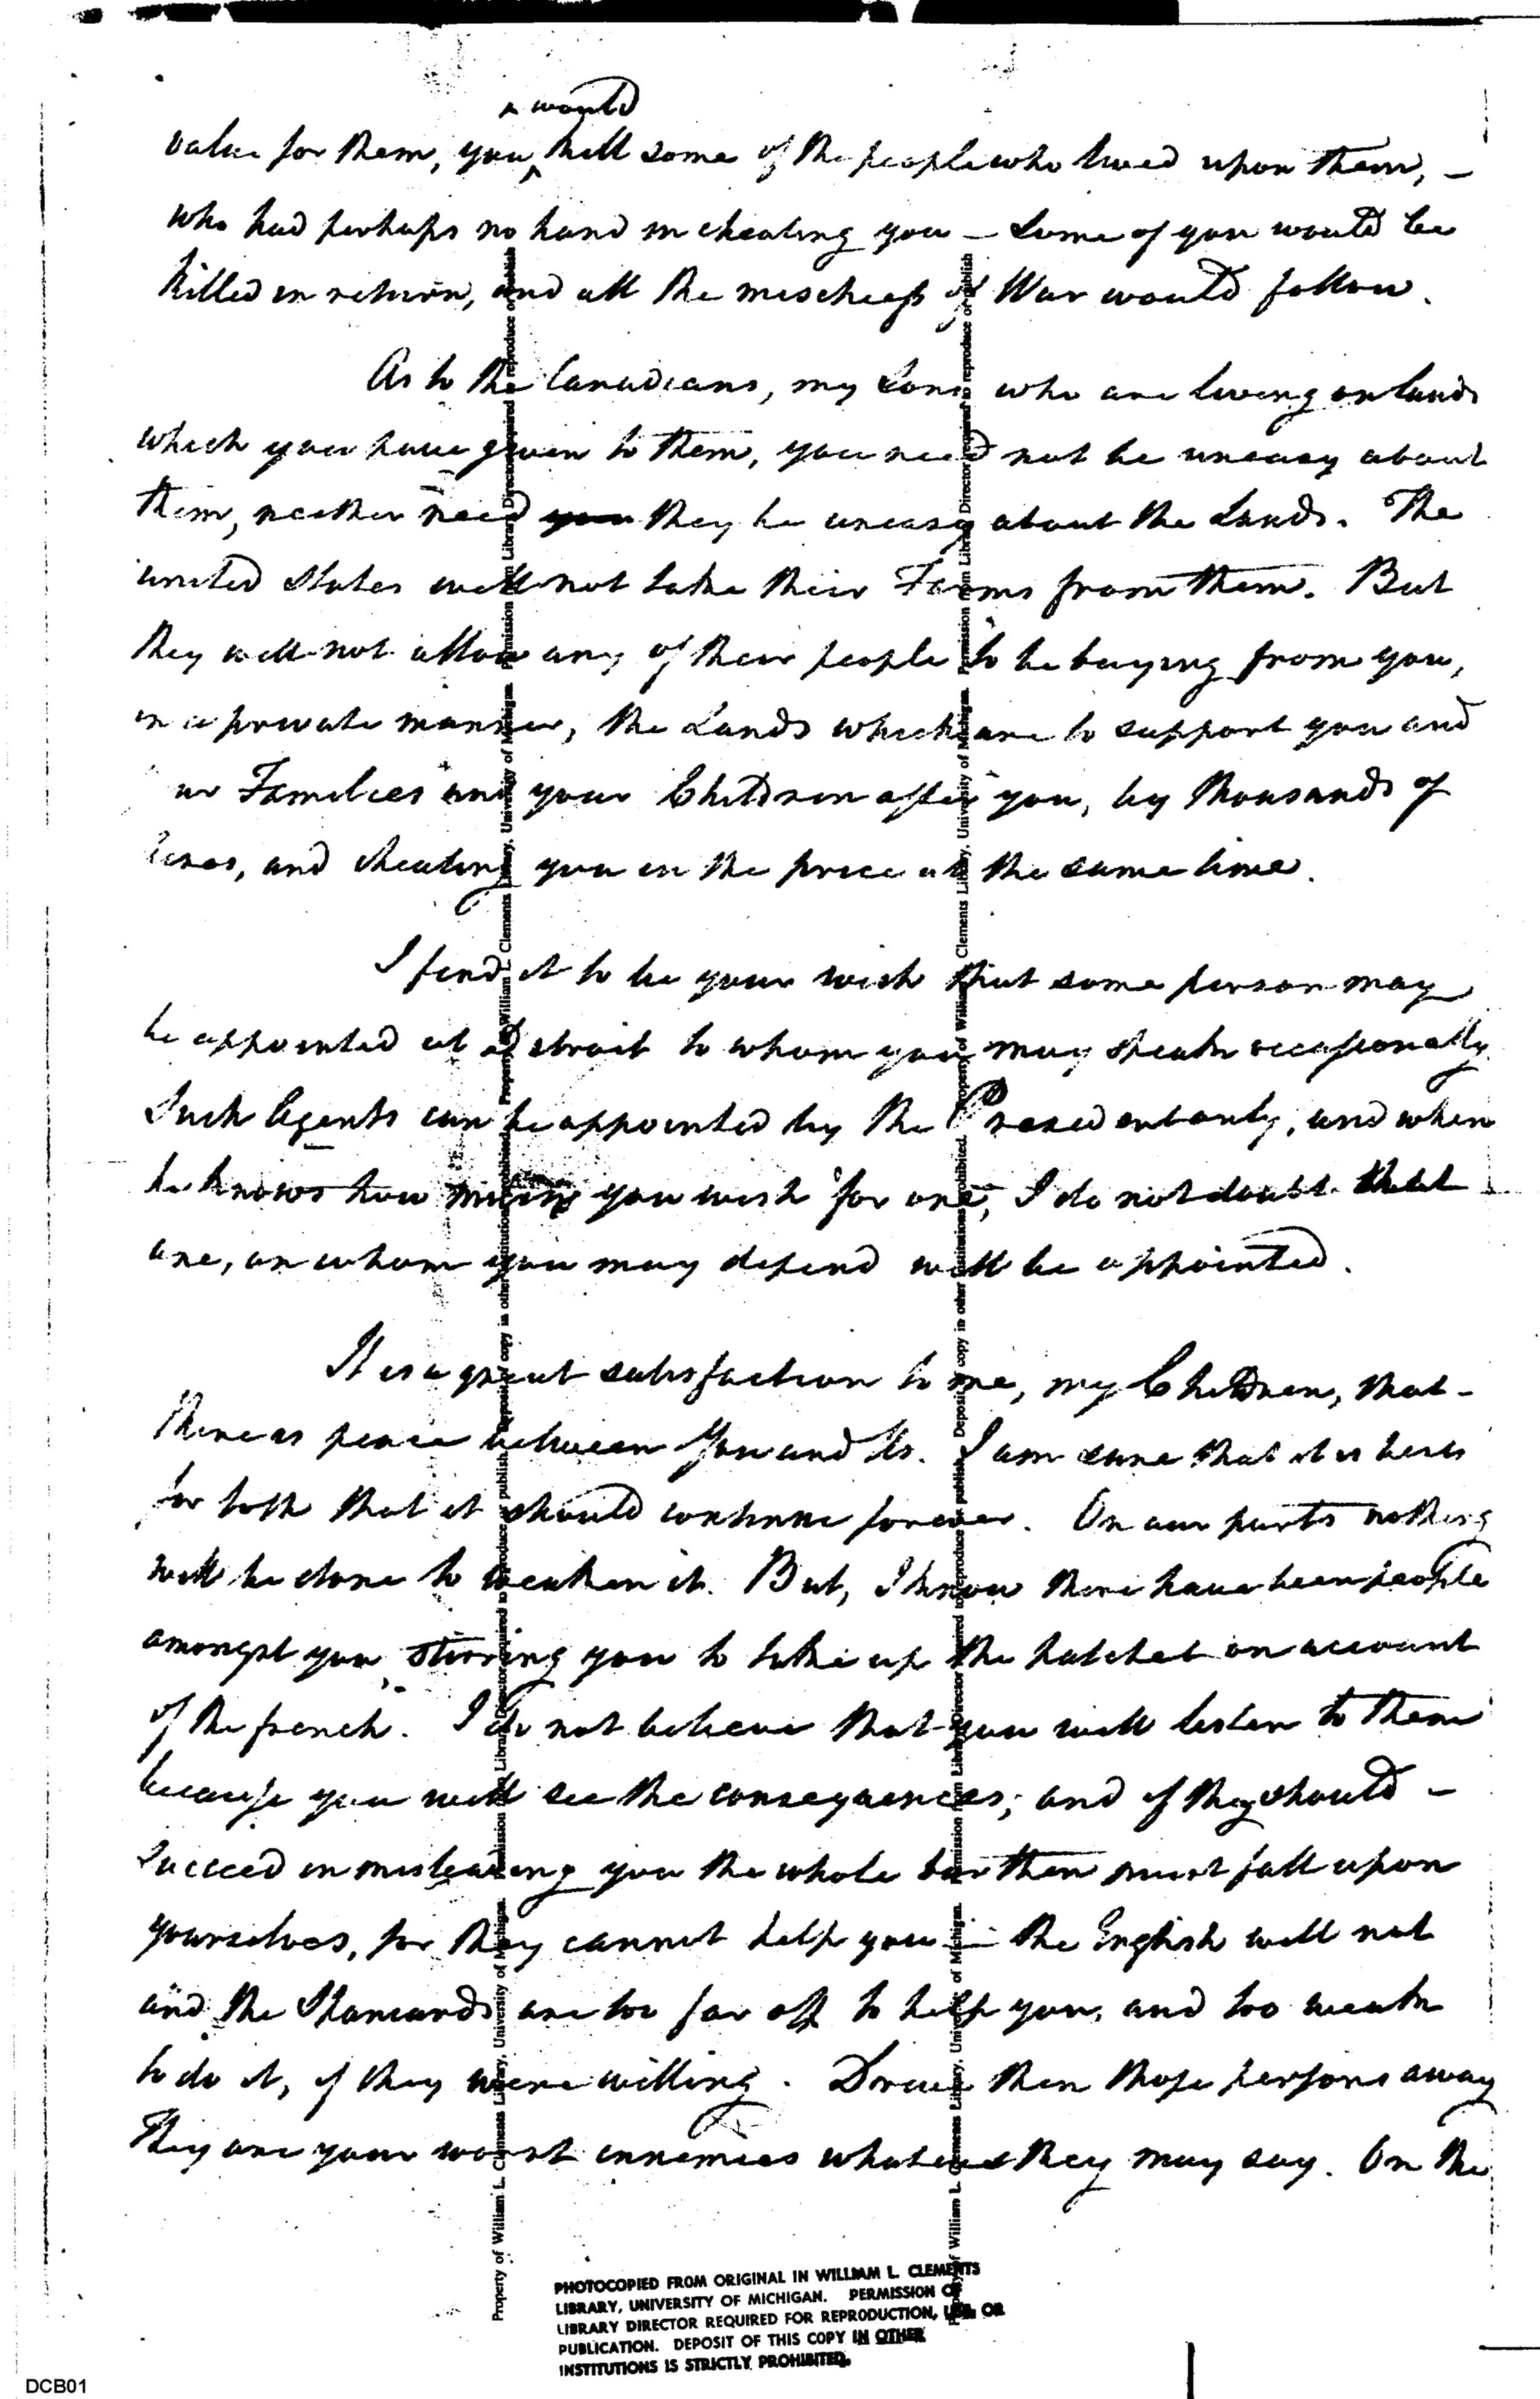 & would
value for them, you ‸ kill some of the people who lived upon them, –
who had perhaps no hand in cheating you – Some of you would be
killed in return, and all the mischiefs of War would follow.
As to the Canadians, my Sons who are living on lands
which you have given to them, you need not be uneasy about
them, neither need you they be uneasy about the Lands. The
united States will not take their Farms from them. But
they will not allow any of their people to be buying from you,
in a private manner, the Lands which are to support you and
ur Families and your Children after you, by thousands of
cres, and cheating you in the price at the same time.
I find it to be your wish that some person may
be appointed at Detroit to whom you may speak occasionally
Such Agents can be appointed by the President only, and when
he knows how you wish for one, I do not doubt that
one, on whom you may depend will be appointed.
It is a great satisfaction to me, my Children, that –
there is peace between You and Us. I am sure that it is best
for both that it should continue forever. On our parts nothing
will be done to weaken it. But, I know there have been people
amongst you, stirring you to take up the hatchet on account
of the french. I do not believe that you will listen to them
because you will see the consequences; and if they should –
Succeed in misleading you the whole burthen must fall upon
yourselves, for they cannot help you – the English will not
and the Spaniards are too far off to help you, and too weak
to do it, if they were willing. Drive then those persons away
They are your worst ennemies whatever they may say. On the
Property of William L. Clements Library, University of Michigan. Permission from Library Director required to reproduce or publish. Deposit of copy in other institutions prohibited.
Property of William L. Clements Library, University of Michigan. Permission from Library Director required to reproduce or publish
Property of William L. Clements Library, University of Michigan. Permission from Library Director required to reproduce or publish. Deposit of copy in other institutions prohibited.
Property of William L. Clements Library, University of Michigan. Permission from Library Director required to reproduce or publish
PHOTOCOPIED FROM ORIGINAL IN WILLIAM L. CLEMENTS
LIBRARY, UNIVERSITY OF MICHIGAN. PERMISSION OF
LIBRARY DIRECTOR REQUIRED FOR REPRODUCTION, USE, OR
PUBLICATION. DEPOSIT OF THIS COPY IN OTHER
INSTITUTIONS IS STRICTLY PROHIBITED.
DCB01